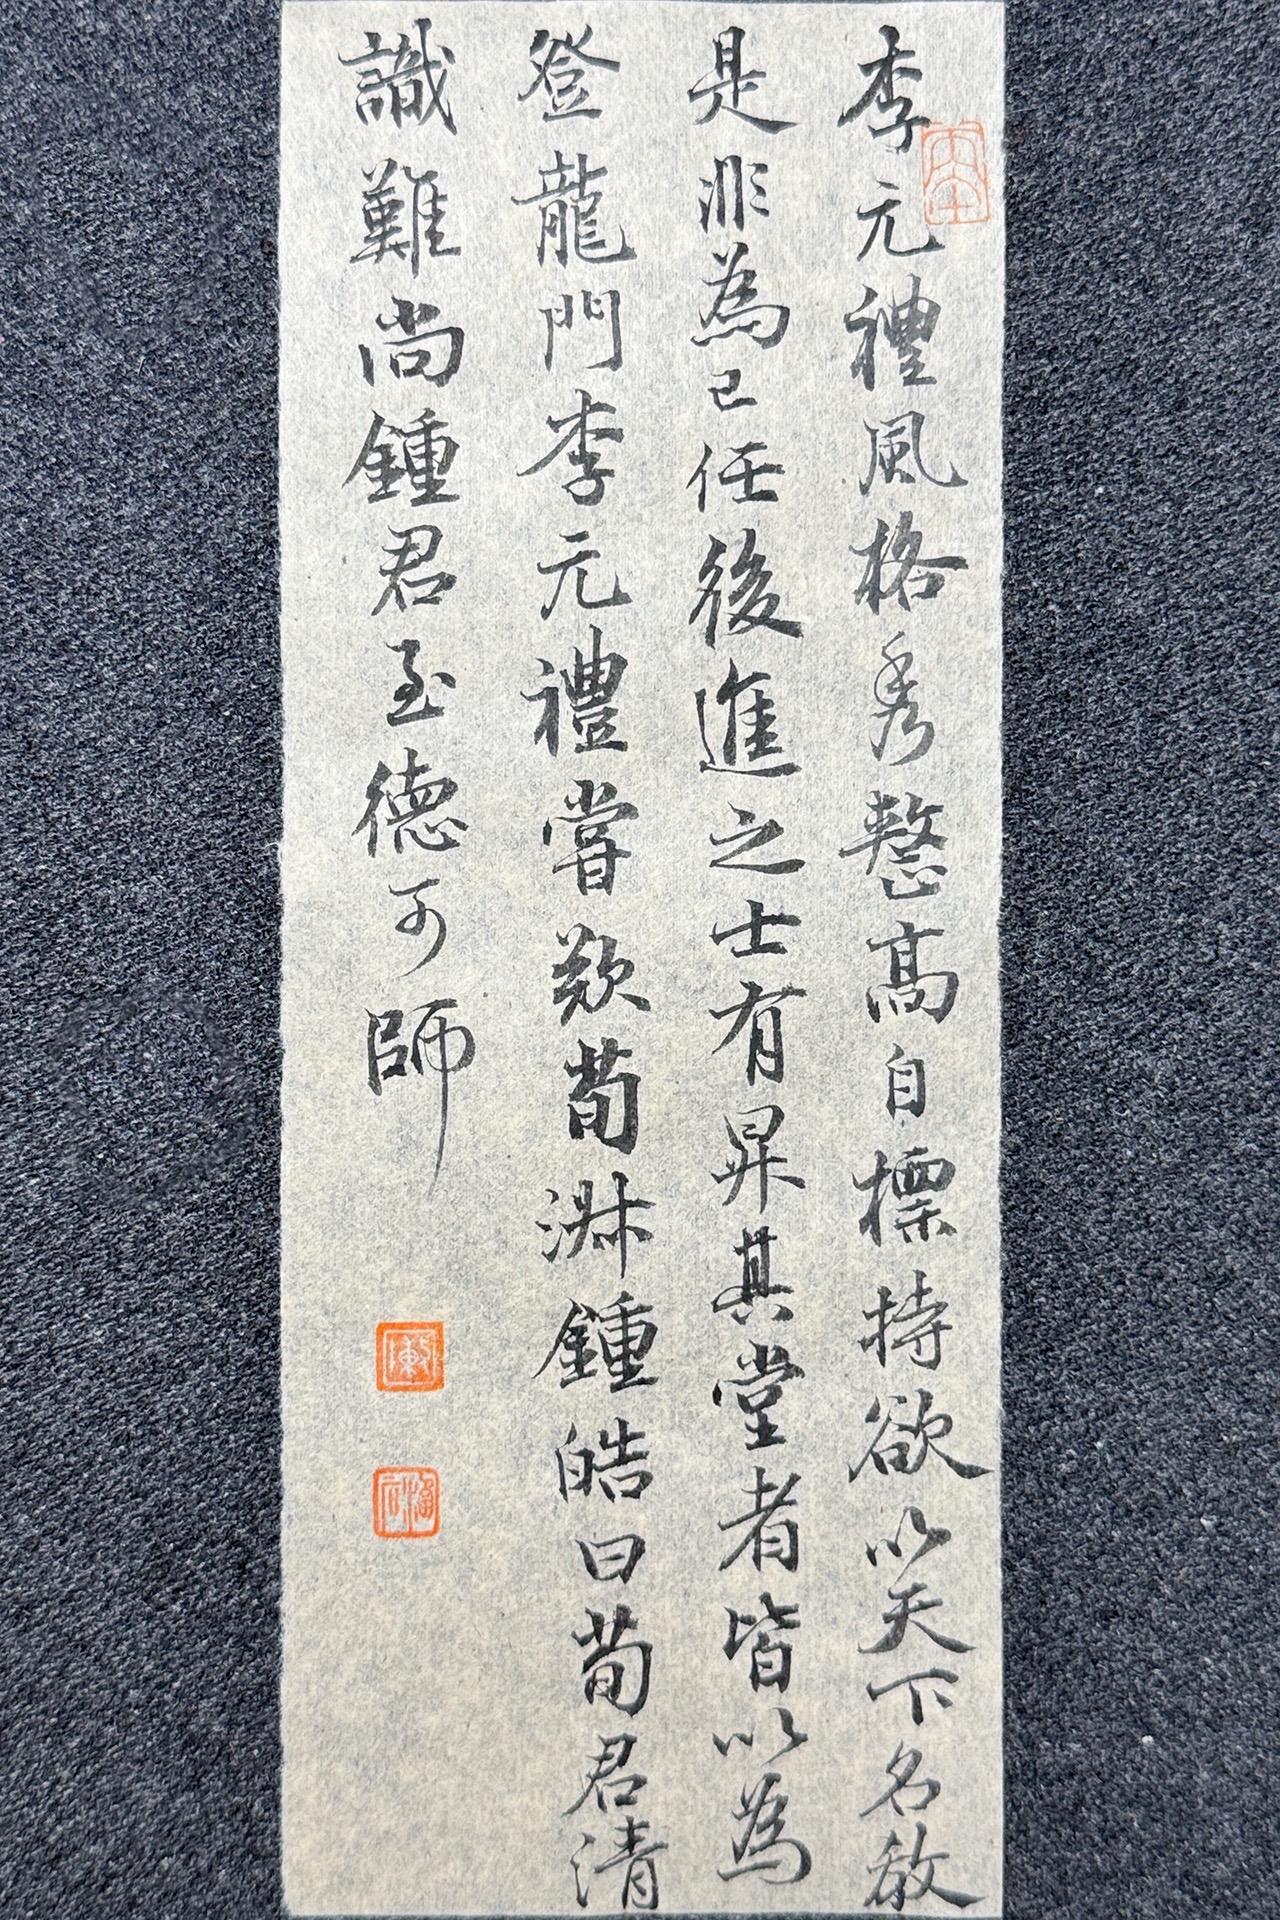 李元禮風格秀整高自標持欲以天下名教
是非為已任後進之士有昇其堂者皆以為
登龍門李元禮嘗歎荀淋鍾皓曰荀君清
識難尚鍾君至德可師